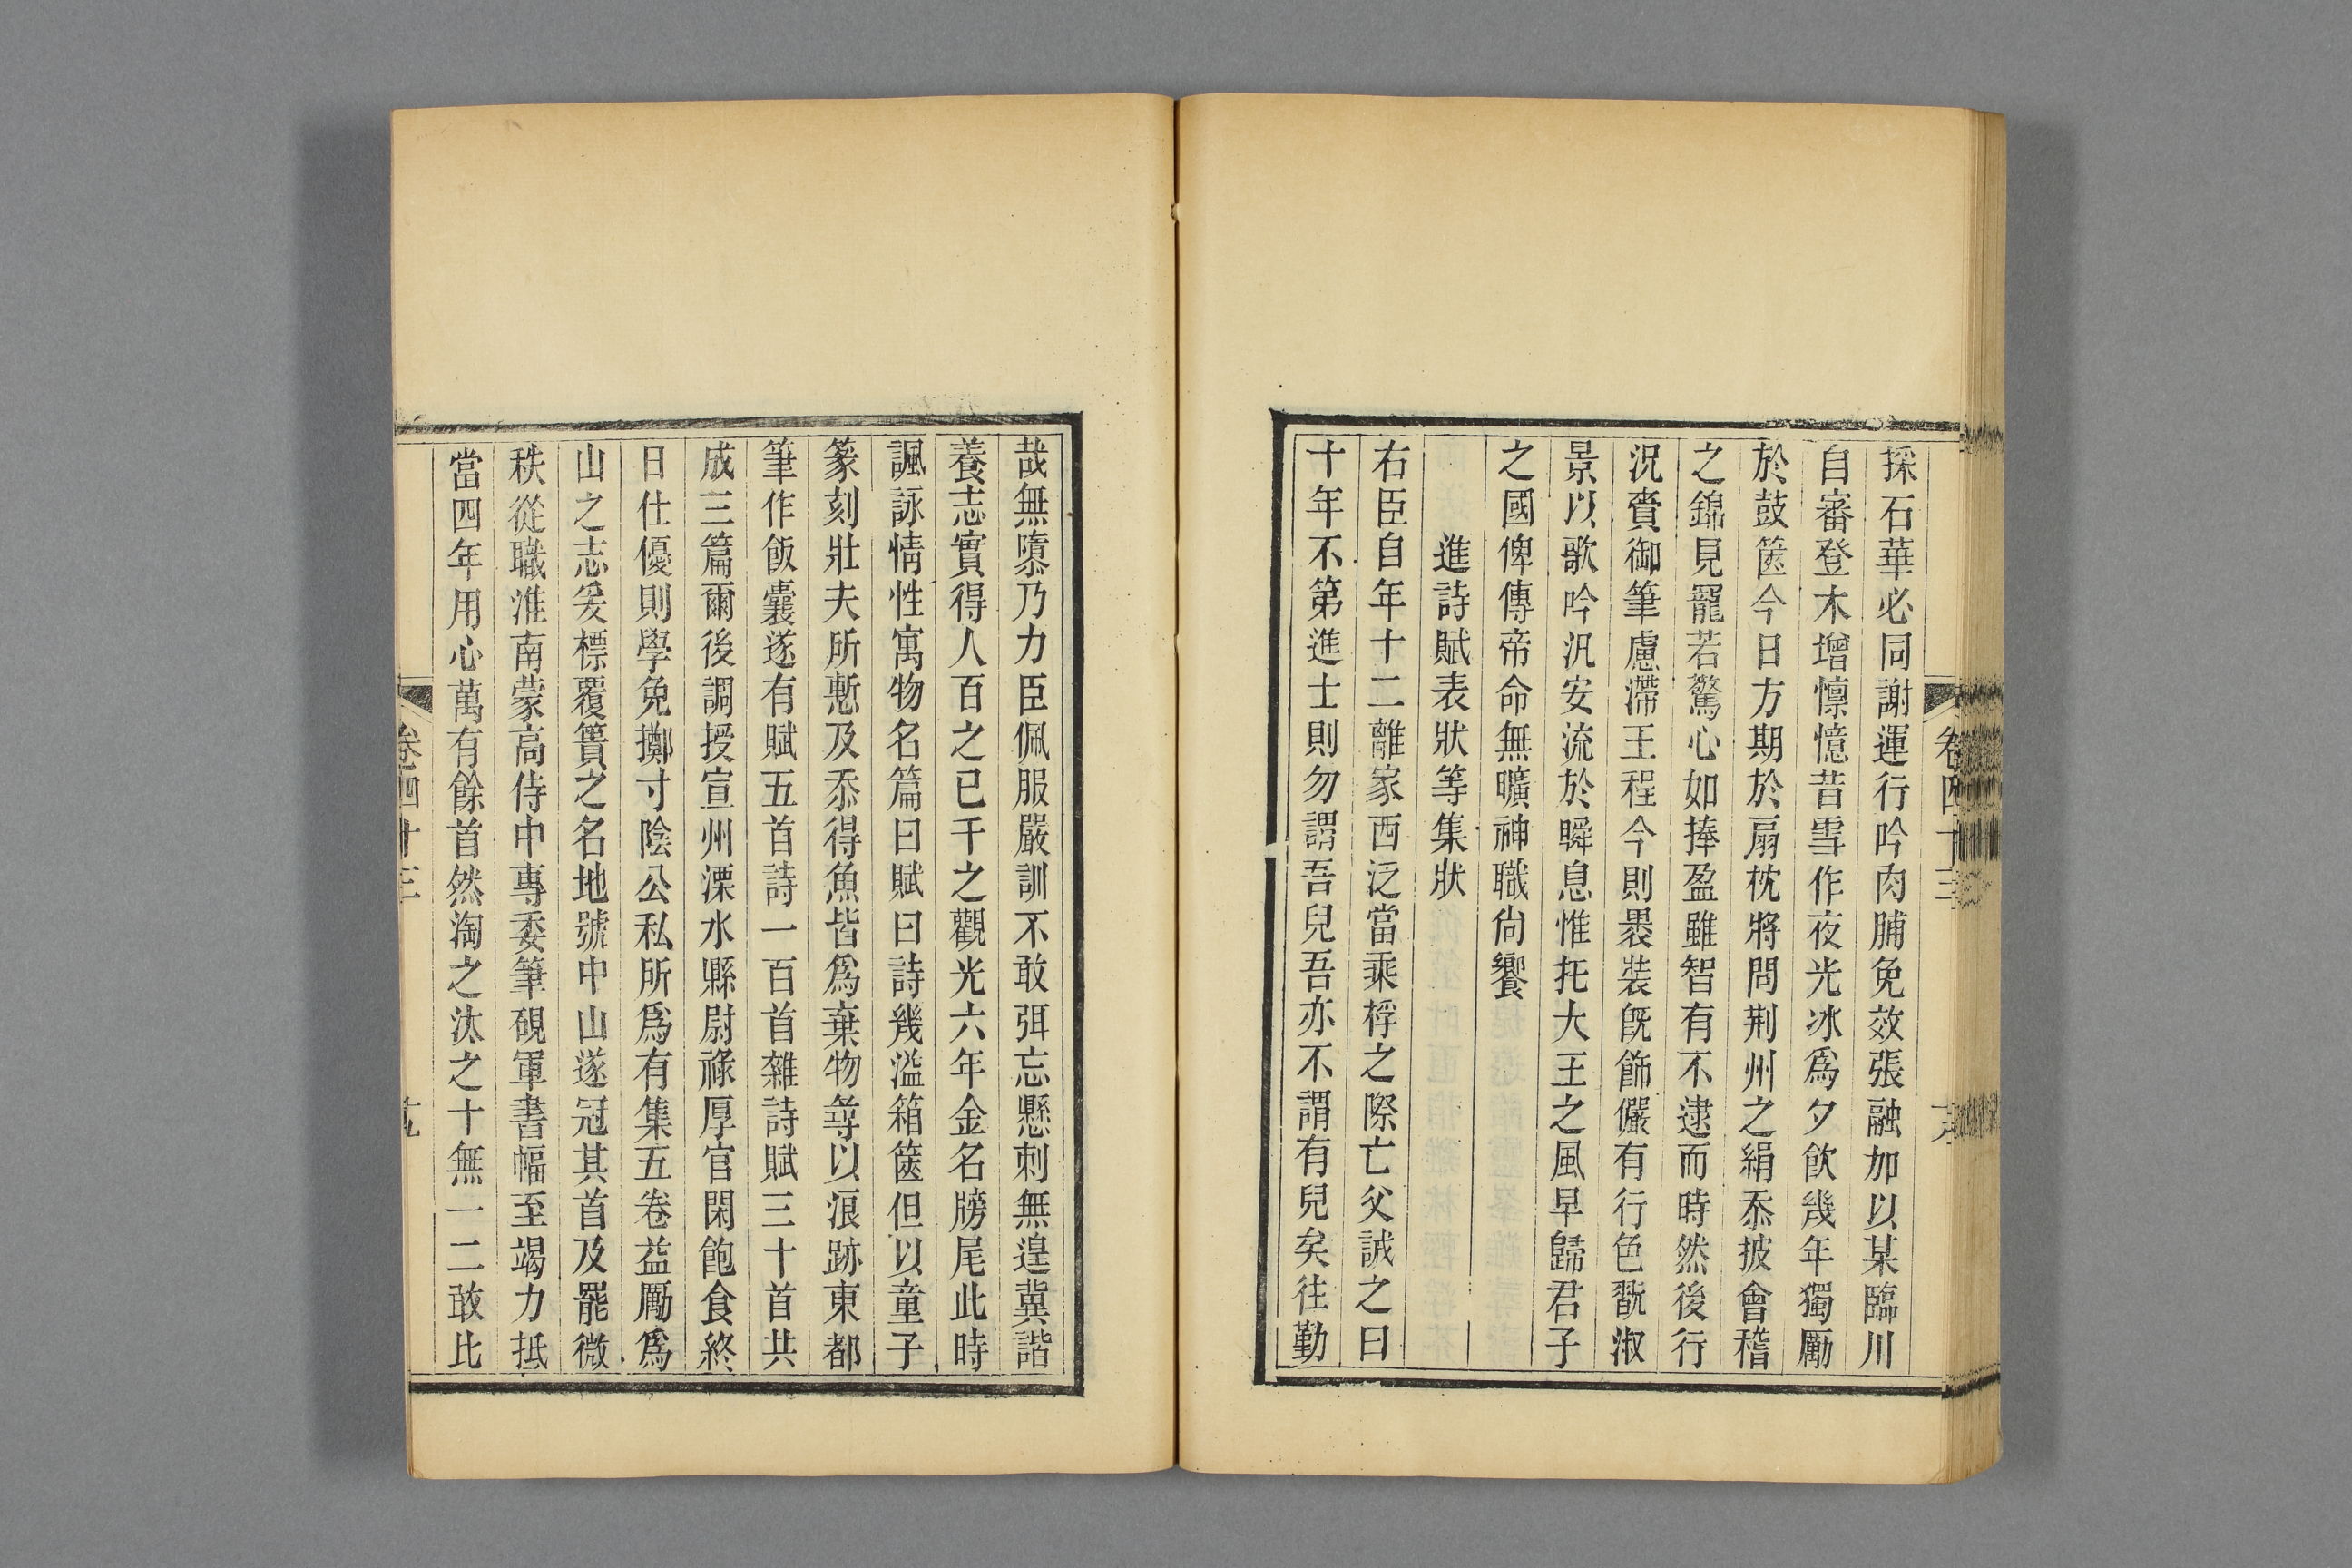 採石華必同謝運行吟肉脯免效張融加以某臨川
自審登木增懍憶昔雪作夜光冰爲夕飲幾年獨勵
於鼓篋今日方期於扇枕將問荆州之絹忝披會稽
之錦見寵若驚心如捧盈雖智有不逮而時然後行
況賷御筆慮滯王程今則褁装旣飾儼有行色翫淑
景以歌吟汎安流於瞬息惟托大王之風早歸君子
之國俾傳帝命無曠神職尙饗
進詩賦表狀等集狀
右臣自年十二離家西泛當乘桴之際亡父誡之曰
十年不第進士則勿謂吾兒吾亦不謂有兒矣往勤
卷四十三
哉無隳乃力臣佩服嚴訓不敢弭忘懸刺無遑冀諧
養志實得人百之已千之觀光六年金名牓尾此時
諷詠情性寓物名篇曰賦曰詩幾溢箱篋但以童子
篆刻壯夫所慙及忝得魚皆爲棄物尋以浪跡東都
筆作飯囊遂有賦五首詩一百首雜詩賦三十首共
成三篇爾後調授宣州溧水縣尉祿厚官閑飽食終
日仕優則學免擲寸陰公私所爲有集五卷益勵爲
山之志爰標覆簣之名地號中山遂冠其首及罷微
秩從職淮南蒙高侍中專委筆硯軍書幅至竭力抵
當四年用心萬有餘首然淘之汰之十無一二敢比
卷四十三